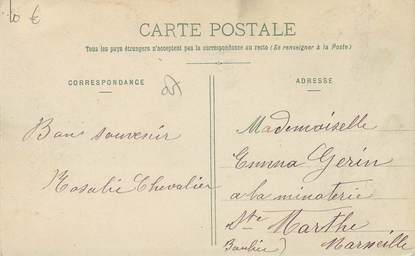 10 €
CARTE POSTALE
Tous les pays étrangers n'acceptent pas la correspondance au recto (Se renseigner à la Poste)
CORRESPONDANCE
ADRESSE
Bon souvenir
Rosalie Chevalier
Mademoiselle
Emma Gerin
a la minoterie
Ste Marthe
Marseille